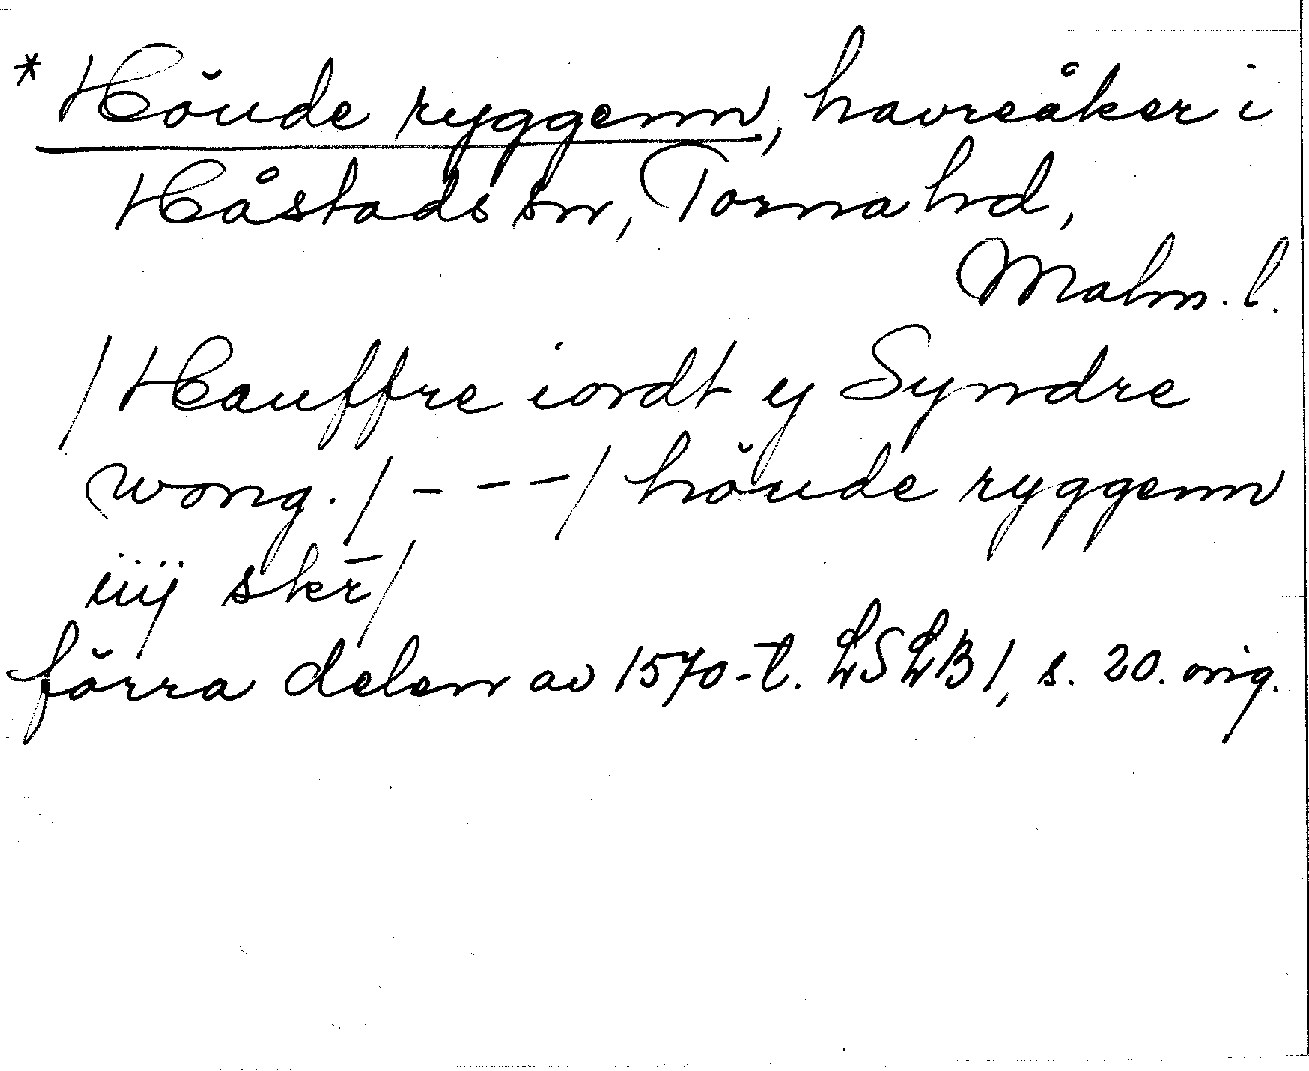 * Höude ryggenn, havreåker i
Håstads sn, Torna hd,
Malm. l.
/Hauffre iordt y Syndre
wong./- - - -/ höude ryggenn
iiij skr̄/
förra delen av 1570-t. LSLB 1, s. 20. orig.